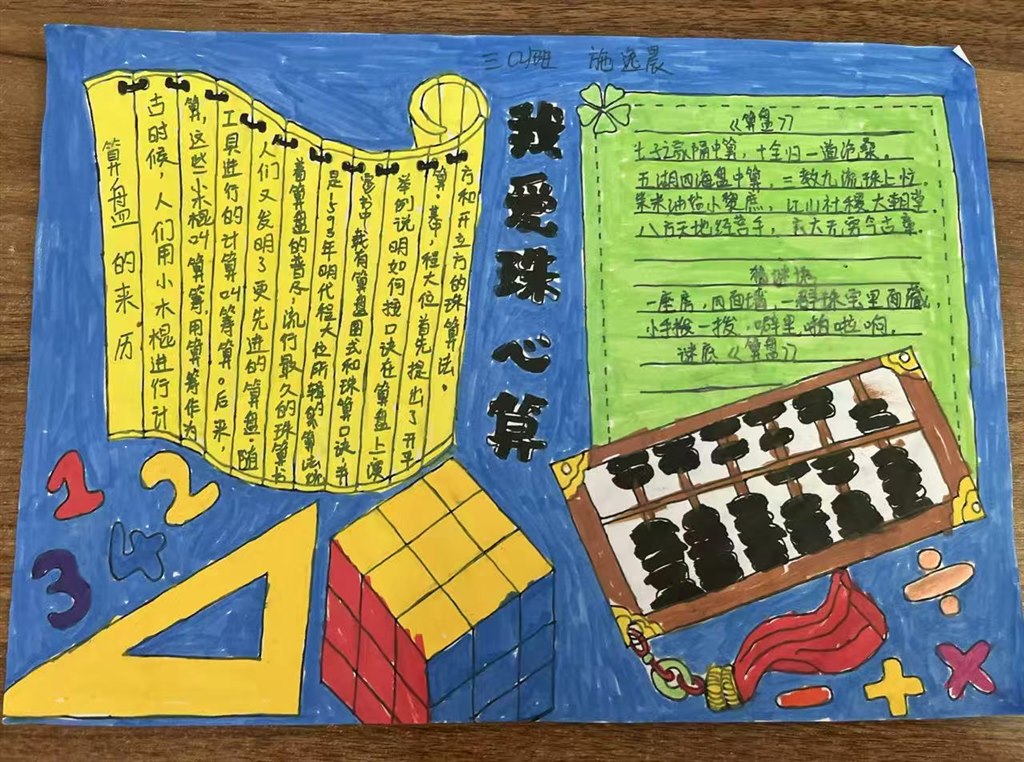 三 班 施逸晨
算盘的来历
古时候，人们用小木棍进行计
算，这些小木棍叫算筹，用算筹作为
工具进行的计算叫筹算。后来，
人们又发明了更先进的算盘。随
着算盘的普及，流行最久的珠算书
是1593年明代程大位所辑的算法统
宗书中载有算盘图式和珠算口诀并
举例说明如何按口诀在算盘上演
算，其中，程大位首先提出了开平
方和开立方的珠算法。
我爱珠心算
《算盘》
七子之家隔中算，十全归一道沧桑。
五湖四海盘中算，三教九流珠上忙。
柴米油盐小黎庶，江山社稷大朝堂。
八方天地经营手，
猜谜语
一座房，四面墙，一群珠宝里面藏。
小手指一拨，噼里啪啦响。
谜底《算盘》
1 2
3 4
÷
+ ×
-